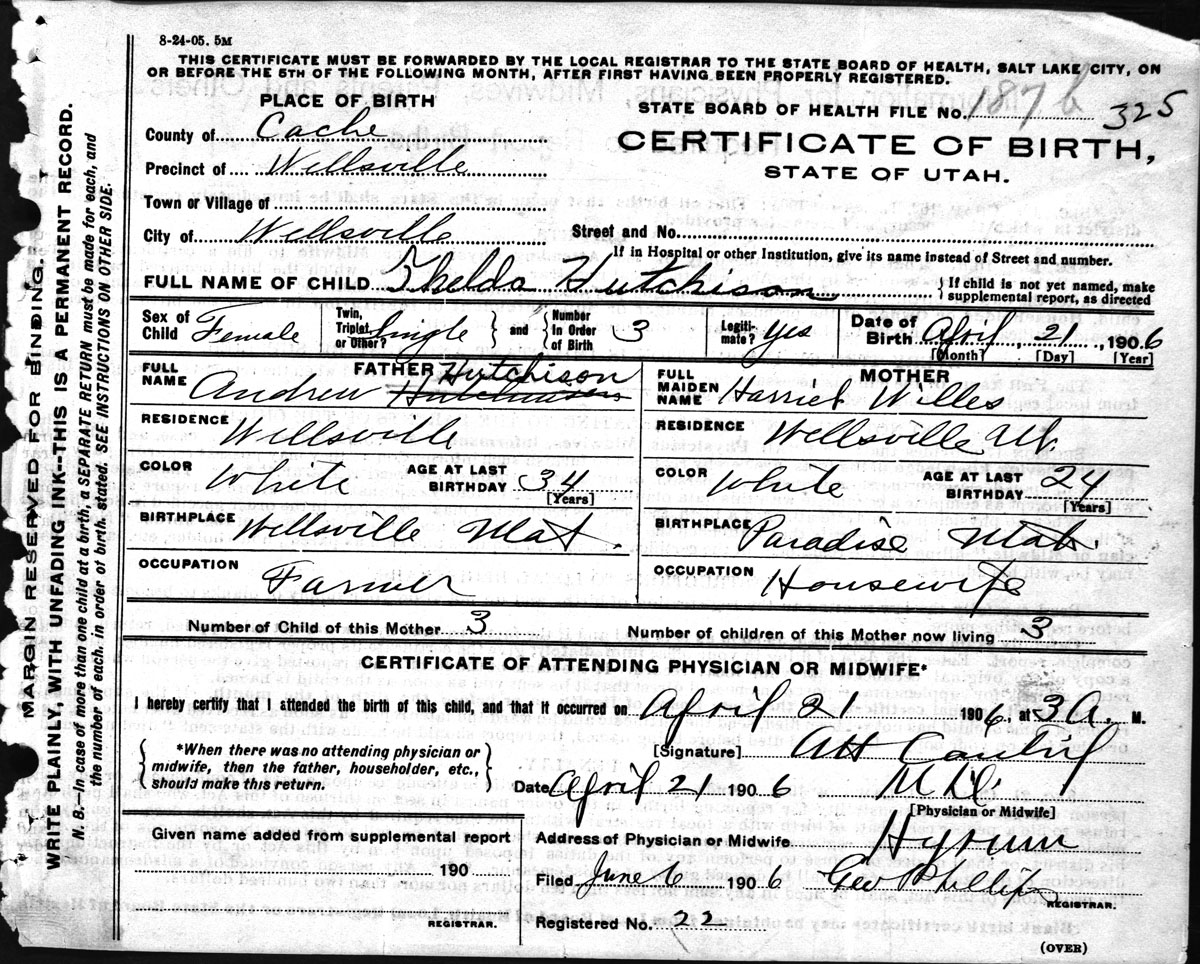 8-24-05. 5M
THIS CERTIFICATE MUST BE FORWARDED BY THE LOCAL REGISTRAR TO THE STATE BOARD OF HEALTH, SALT LAKE CITY, ON
OR BEFORE THE 5TH OF THE FOLLOWING MONTH, AFTER FIRST HAVING BEEN PROPERLY REGISTERED.
PLACE OF BIRTH
STATE BOARD OF HEALTH FILE No. 1876 325
County of Cache
CERTIFICATE OF BIRTH,
Precinct of Wellsville
STATE OF UTAH.
Town or Village of
City of Wellsville Street and No.
If in Hospital or other Institution, give its name instead of Street and number.
FULL NAME OF CHILD Thelda Hutchison { If child is not yet named, make
supplemental report, as directed
Sex of Child Female Twin, Triplet, or Other? Single } and { Number In Order of Birth 3 Legiti- mate? yes Date of Birth April, 21, 1906
[Month] [Day] [Year]
FATHER
FULL NAME Andrew Hutchison
RESIDENCE Wellsville
COLOR White AGE AT LAST BIRTHDAY 34
[Years]
BIRTHPLACE Wellsville Utah.
OCCUPATION Farmer
MOTHER
FULL MAIDEN NAME Harriet Willes
RESIDENCE Wellsville Ut.
COLOR White AGE AT LAST BIRTHDAY 24
[Years]
BIRTHPLACE Paradise Utah.
OCCUPATION Housewife
Number of Child of this Mother 3 Number of children of this Mother now living 3
CERTIFICATE OF ATTENDING PHYSICIAN OR MIDWIFE*
I hereby certify that I attended the birth of this child, and that it occurred on April 21 1906, at 3 A. M.
{ *When there was no attending physician or
midwife, then the father, householder, etc.,
should make this return. }
[Signature]
Date April 21 1906 M.D.
[Physician or Midwife]
Given name added from supplemental report
190
REGISTRAR.
Address of Physician or Midwife Hyrum
Filed June 6 1906 Geo Phillips
REGISTRAR.
Registered No. 22
(OVER)
MARGIN RESERVED FOR BINDING
WRITE PLAINLY, WITH UNFADING INK--THIS IS A PERMANENT RECORD.
N. B.--In case of more than one child at a birth, a SEPARATE RETURN must be made for each, and
the number of each, in order of birth, stated. SEE INSTRUCTIONS ON OTHER SIDE.